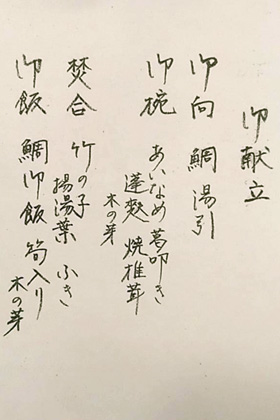 御献立
御向 鯛 湯引
御椀 あいなめ葛叩き
蓬麩 焼椎茸
木の芽
焚合 竹の子 ふき
揚湯葉
御飯 鯛御飯 筍入り
木の芽